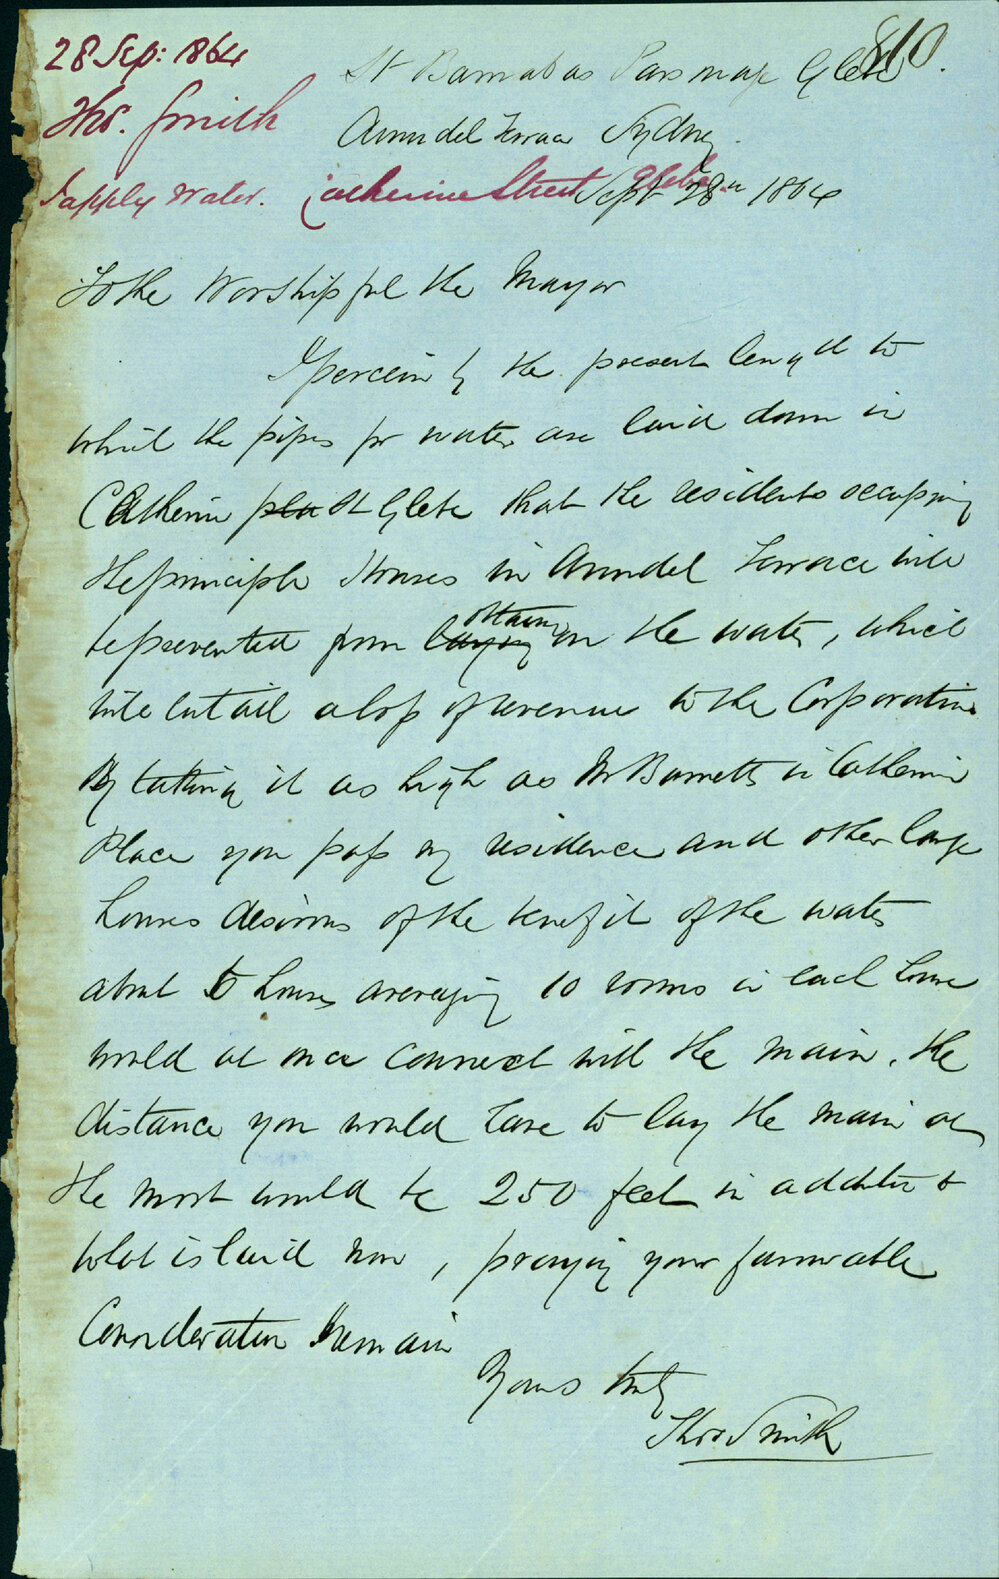 28 Sep: 1864
810.
St Barnabas Parsonage Glebe
Thos. Smith
Arundel Terrace Sydney.
Supply Water.
Catherine Street Glebe.
Sept 28th 1864
To the Worshipful the Mayor
I perceive by the present length to
which the pipes for water are laid down in
Catherine place St Glebe that the residents occupying
the principle Houses in Arundel Terrace will
be prevented from laying obtaining on the water, which
will entail a loss of revenue to the Corporation
By taking it as high as Mr Barnetts in Catherine
Place you pass my residence and other large
houses desirous of the benefit of the water
about 6 houses averaging 10 rooms in each house
would at once connect with the main. the
distance you would have to lay the main at
the most would be 250 feet in addition to
what is laid now, praying your favourable
Consideration I remain
Yours truly
Thos Smith